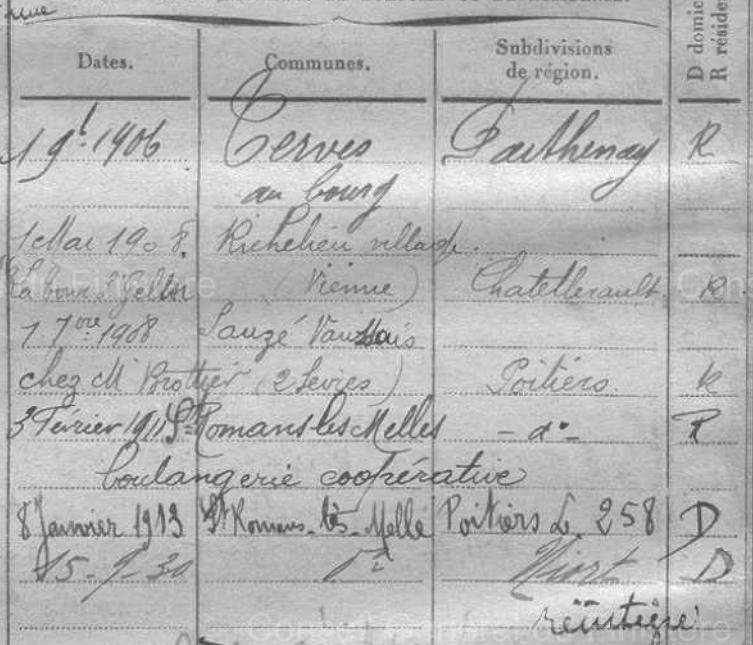 Dates. Communes. Subdivisions de région. D domic R résider
1 9b 1906 Cerves Parthenay R
au bourg
1 Mai 1908. Richelieu village.
(Vienne) Chatellerault R
1 7bre 1908 Sauzé Vaussais
chez M Brottier (2 Sevres) Poitiers. R
3 Février 1911 St Romans les Melles - do - R
boulangerie coopérative
8 Janvier 1913 St Romans-lès-Melle Poitiers L 258 D
15-9-30 do Niort D